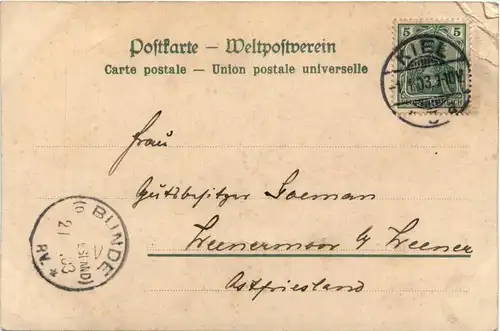 Postkarte – Weltpostverein
Carte postale – Union postale universelle
5 5
KIEL
.03.
10V
Frau
Gutsbesitzer Loeman
Weenermoor b/ Weener
Ostfriesland
BUNDE
(OSTFRIESLAND)